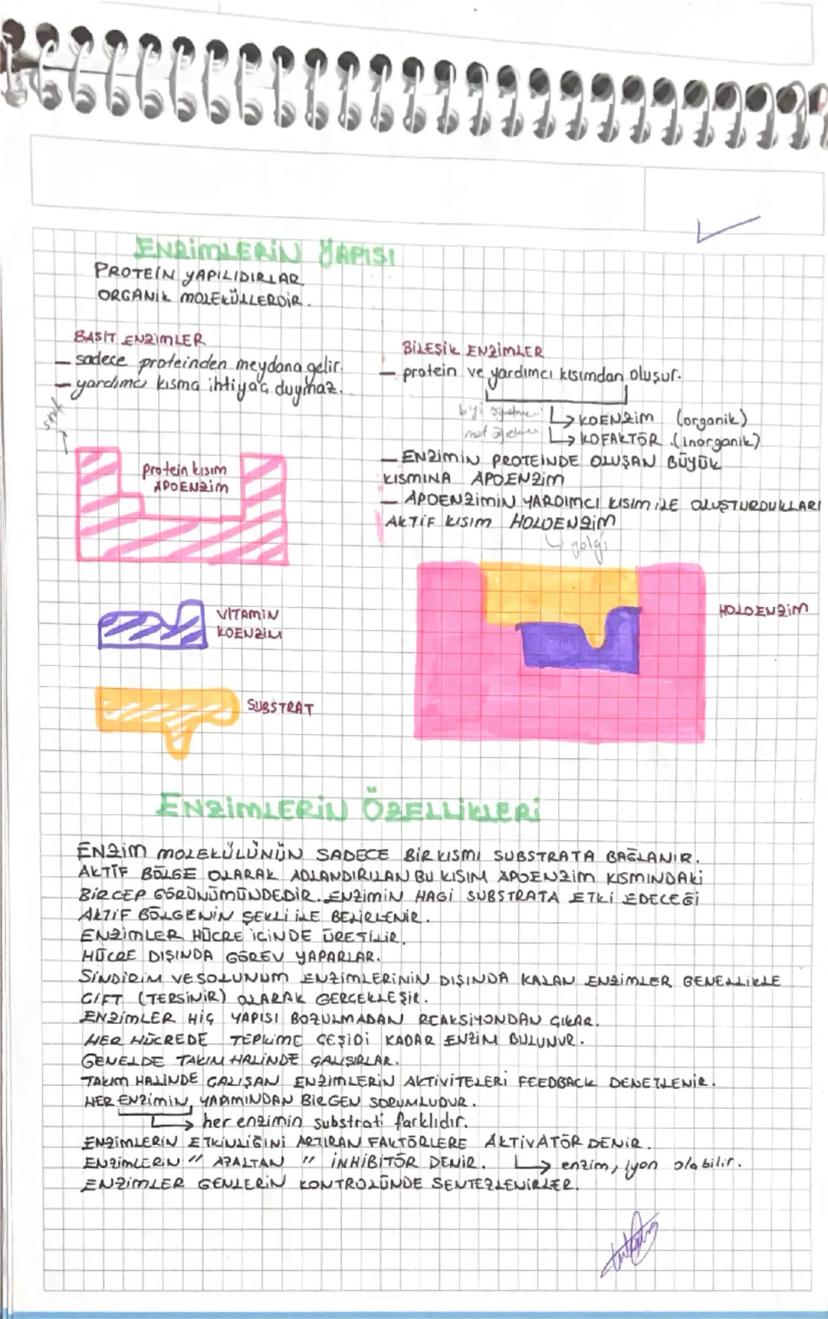 ENZİMLERİN YAPISI
PROTEİN YAPILIDIRLAR
ORGANİK MOLEKÜLLERDİR.
BASİT ENZİMLER
— sadece proteinden meydana gelir.
— yardımcı kısma ihtiyaç duymaz.
protein kısım
APOENZİM
VİTAMİN
KOENZİM
SUBSTRAT
BİLEŞİK ENZİMLER
— protein ve yardımcı kısımdan oluşur.
↳ KOENZİM (organik)
↳ KOFAKTÖR (inorganik)
— ENZİMİN PROTEİNDE OLUŞAN BÜYÜK
KISMINA APOENZİM
— APOENZİMİN YARDIMCI KISIM İLE OLUŞTURDUKLARI
AKTİF KISIM HOLOENZİM
↳ golgi
HOLOENZİM
ENZİMLERİN ÖZELLİKLERİ
ENZİM MOLEKÜLÜNÜN SADECE BİR KISMI SUBSTRATA BAĞLANIR.
AKTİF BÖLGE OLARAK ADLANDIRILAN BU KISIM APOENZİM KISMINDAKİ
BİR CEP GÖRÜNÜMÜNDEDİR. ENZİMİN HAGİ SUBSTRATA ETKİ EDECEĞİ
AKTİF BÖLGENİN ŞEKLİ İLE BELİRLENİR.
ENZİMLER HÜCRE İÇİNDE ÜRETİLİR.
HÜCRE DIŞINDA GÖREV YAPARLAR.
SİNDİRİM VE SOLUNUM ENZİMLERİNİN DIŞINDA KALAN ENZİMLER GENELLİKLE
ÇİFT (TERSİNİR) OLARAK GERÇEKLEŞİR.
ENZİMLER HİÇ YAPISI BOZULMADAN REAKSİYONDAN ÇIKAR.
HER HÜCREDE TEPKİME ÇEŞİDİ KADAR ENZİM BULUNUR.
GENELDE TAKIM HALİNDE ÇALIŞIRLAR.
TAKIM HALİNDE ÇALIŞAN ENZİMLERİN AKTİVİTELERİ FEEDBACK DENETLENİR.
HER ENZİMİN, YAPIMINDAN BİR GEN SORUMLUDUR.
↳ her enzimin substratı farklıdır.
ENZİMLERİN ETKİNLİĞİNİ ARTIRAN FAKTÖRLERE AKTİVATÖR DENİR.
ENZİMLERİN " AZALTAN " İNHİBİTÖR DENİR. ↳ enzim, iyon olabilir.
ENZİMLER GENLERİN KONTROLÜNDE SENTEZLENİRLER.